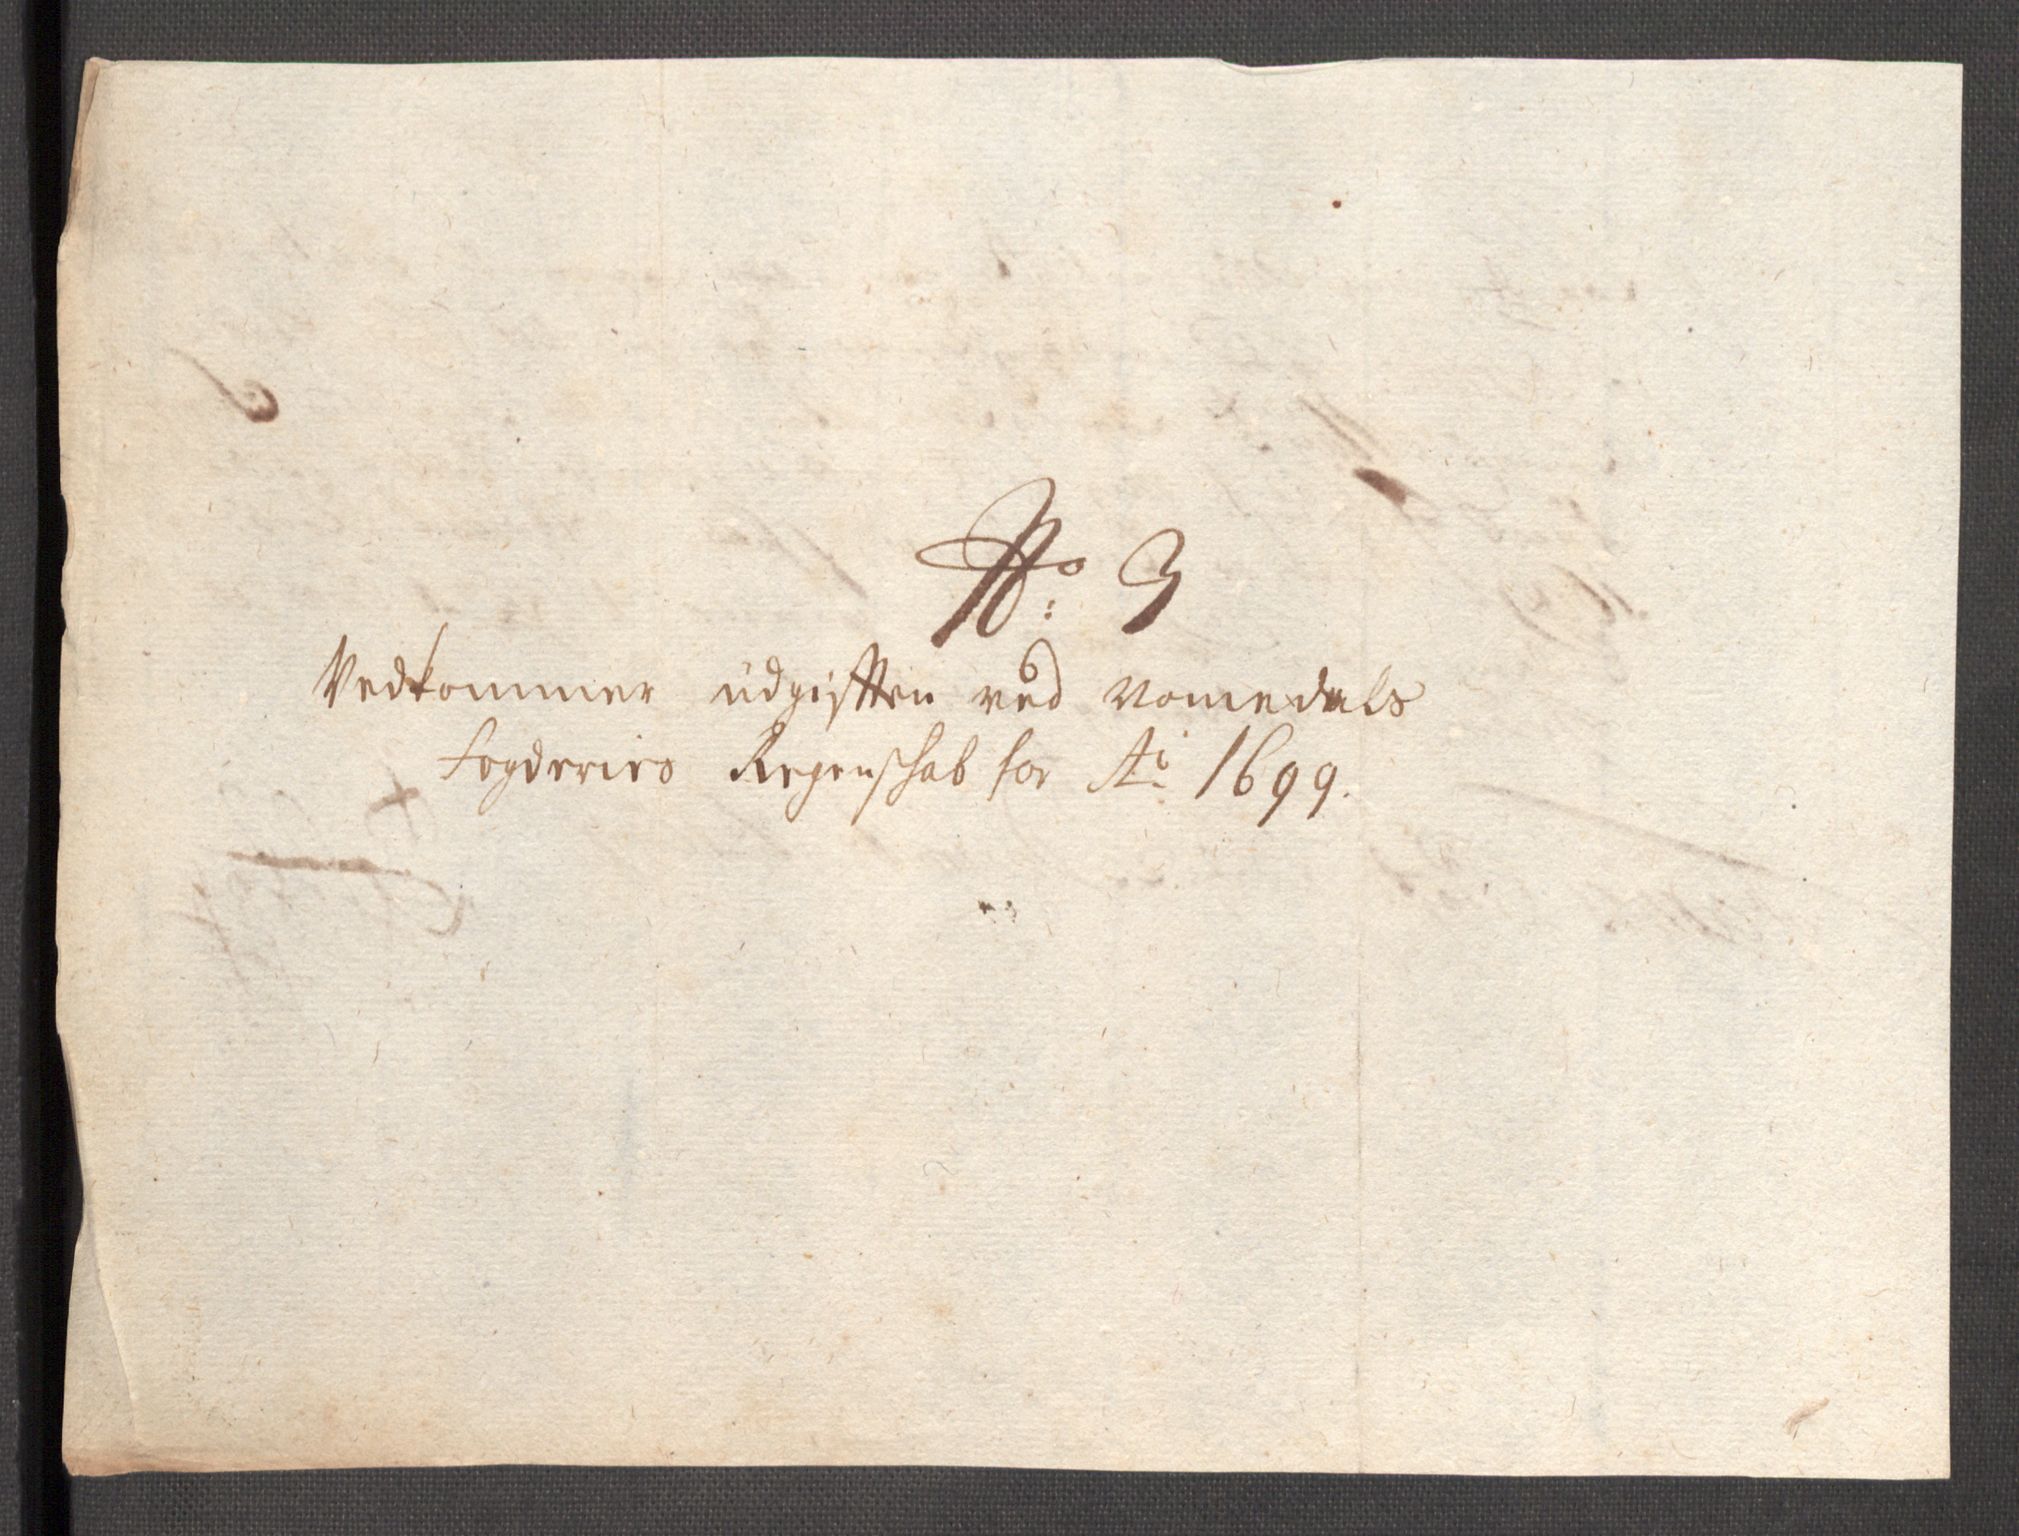 No: 3
Vedkommer üdgifften ved Romsdals
fogderies Regenschab for Ao 1699.